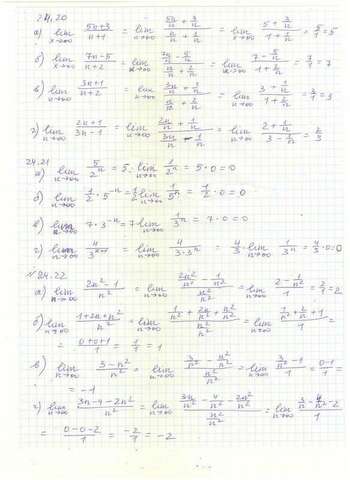 24.20
а) lim n→∞ (5n+3)/(n+1) = lim n→∞ (5n/n + 3/n)/(n/n + 1/n) = lim n→∞ (5 + 3/n)/(1 + 1/n) = 5/1 = 5
б) lim n→∞ (7n-5)/(n+2) = lim n→∞ (7n/n - 5/n)/(n/n + 2/n) = lim n→∞ (7 - 5/n)/(1 + 2/n) = 7/1 = 7
в) lim n→∞ (3n+1)/(n+2) = lim n→∞ (3n/n + 1/n)/(n/n + 2/n) = lim n→∞ (3 + 1/n)/(1 + 2/n) = 3/1 = 3
г) lim n→∞ (2n+1)/(3n-1) = lim n→∞ (2n/n + 1/n)/(3n/n - 1/n) = lim n→∞ (2 + 1/n)/(3 - 1/n) = 2/3
24.21
а) lim n→∞ 5/2ⁿ = 5 · lim n→∞ 1/2ⁿ = 5·0=0
б) lim n→∞ 1/2 · 5⁻ⁿ = 1/2 lim n→∞ 1/5ⁿ = 1/2 · 0 = 0
в) lim n→∞ 7·3⁻ⁿ = 7 lim n→∞ 1/3ⁿ = 7·0=0
г) lim n→∞ 4/3ⁿ⁺¹ = lim n→∞ 4/(3·3ⁿ) = 4/3 · lim n→∞ 1/3ⁿ = 4/3 · 0=0
№24.22
а) lim n→∞ (2n²-1)/n² = lim n→∞ (2n²/n² - 1/n²)/(n²/n²) = lim n→∞ (2 - 1/n²)/1 = 2/1 = 2
б) lim n→∞ (1+2n+n²)/n² = lim n→∞ (1/n² + 2n/n² + n²/n²)/(n²/n²) = lim n→∞ (1/n² + 2/n + 1)/1 =
= (0+0+1)/1 = 1/1 = 1
в) lim n→∞ (3-n²)/n² = lim n→∞ (3/n² - n²/n²)/(n²/n²) = lim n→∞ (3/n² - 1)/1 = (0-1)/1 =
= -1
г) lim n→∞ (3n-4-2n²)/n² = lim n→∞ (3n/n² - 4/n² - 2n²/n²)/(n²/n²) = lim n→∞ (3/n - 4/n² - 2)/1
= (0-0-2)/1 = -2/1 = -2